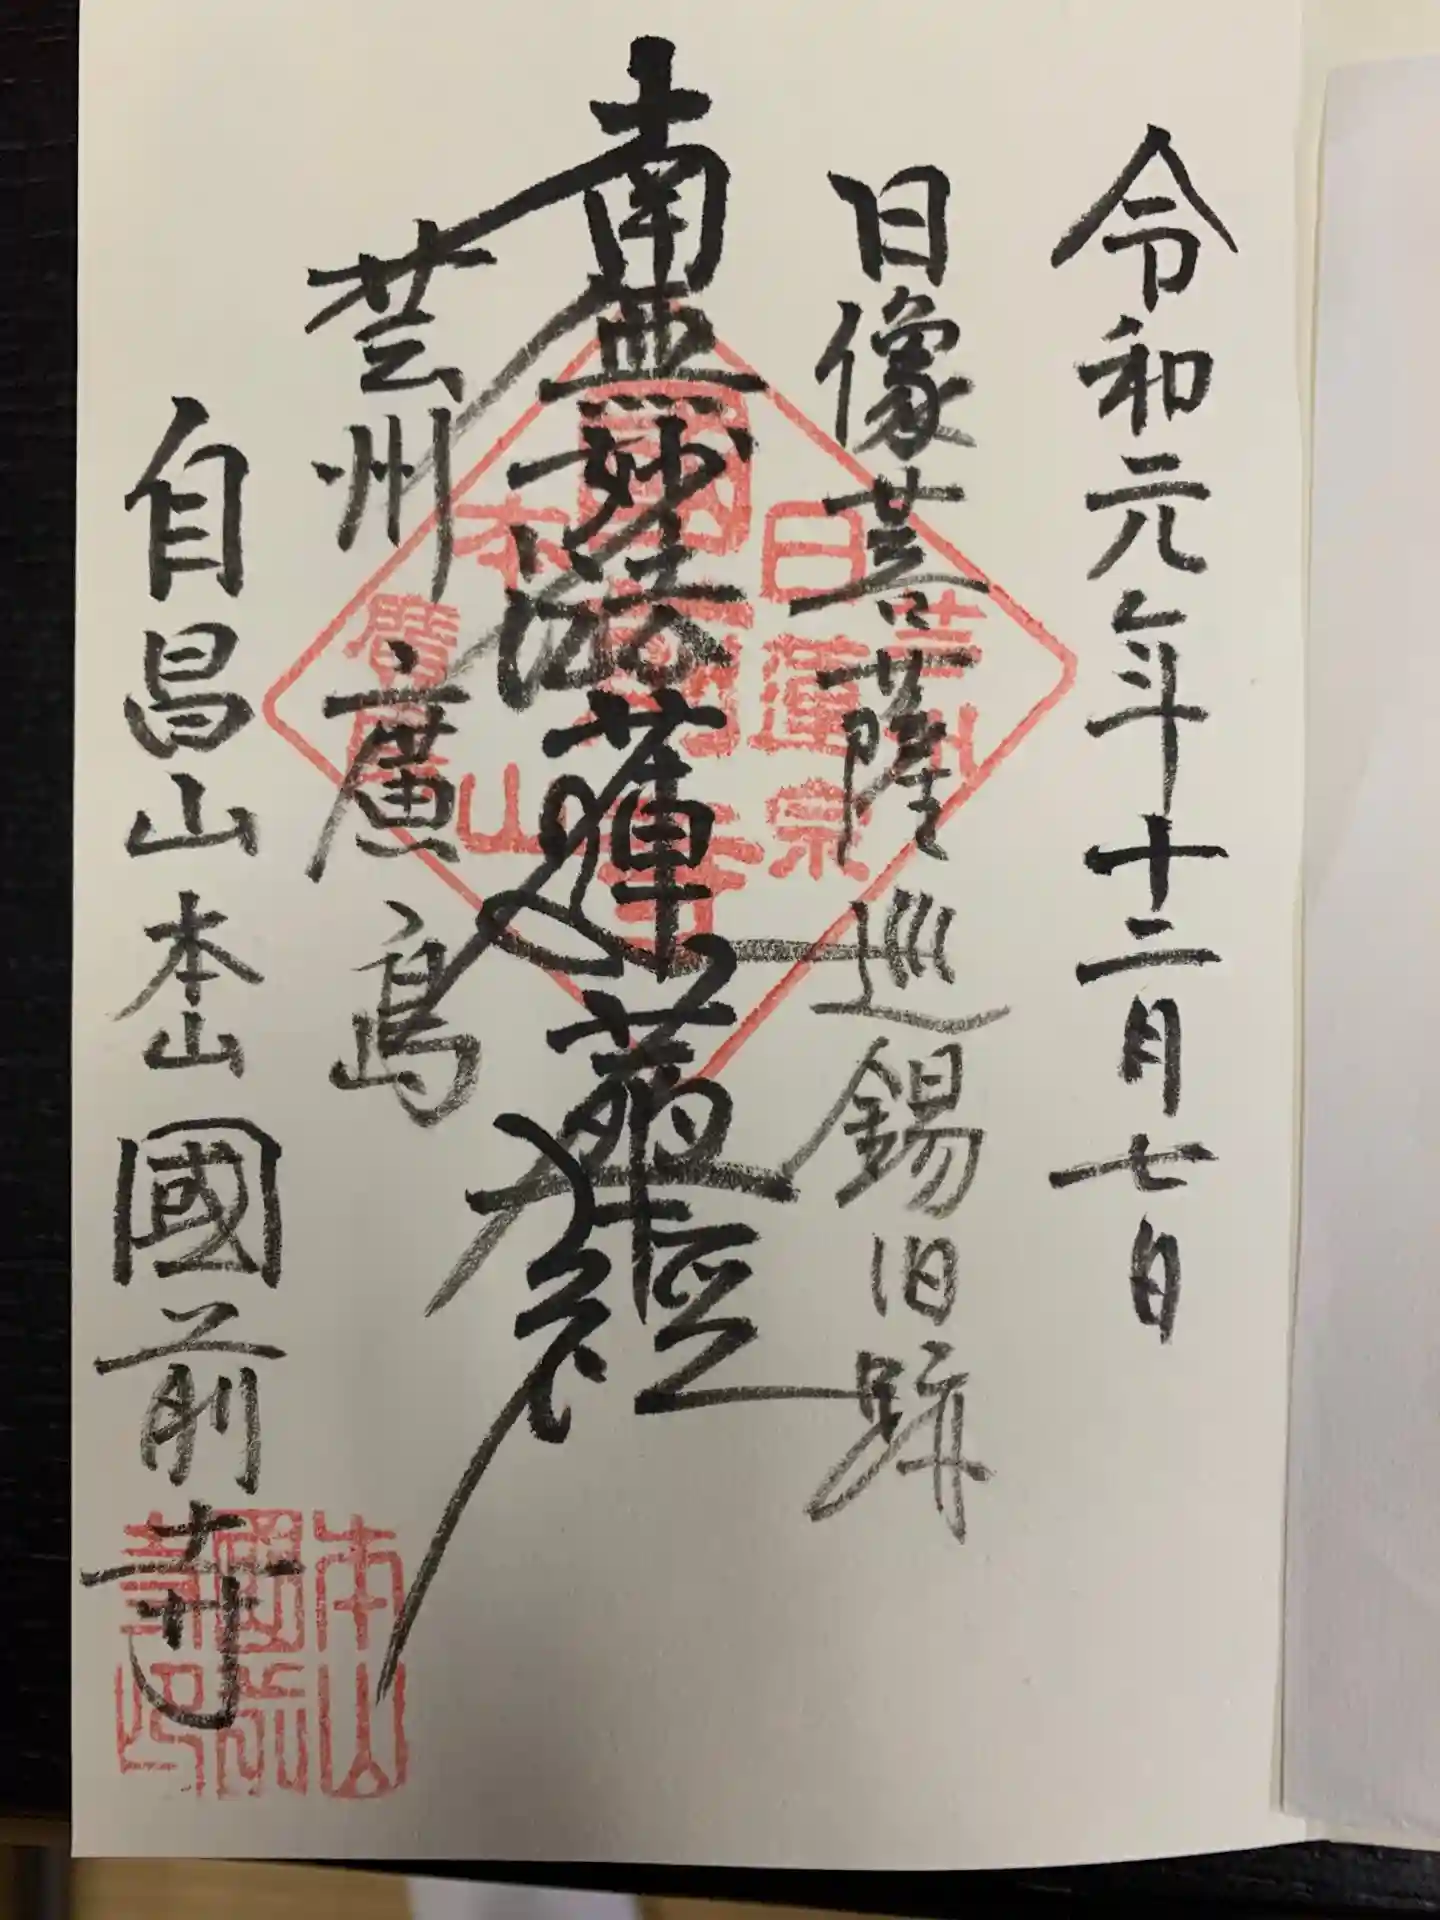 令和元年十二月七日
日像菩薩巡錫旧跡
南無妙法蓮華経
芸州廣島
自昌山本山國前寺
國前寺
日蓮宗
本山
芸州
廣島
本山
國前
寺印